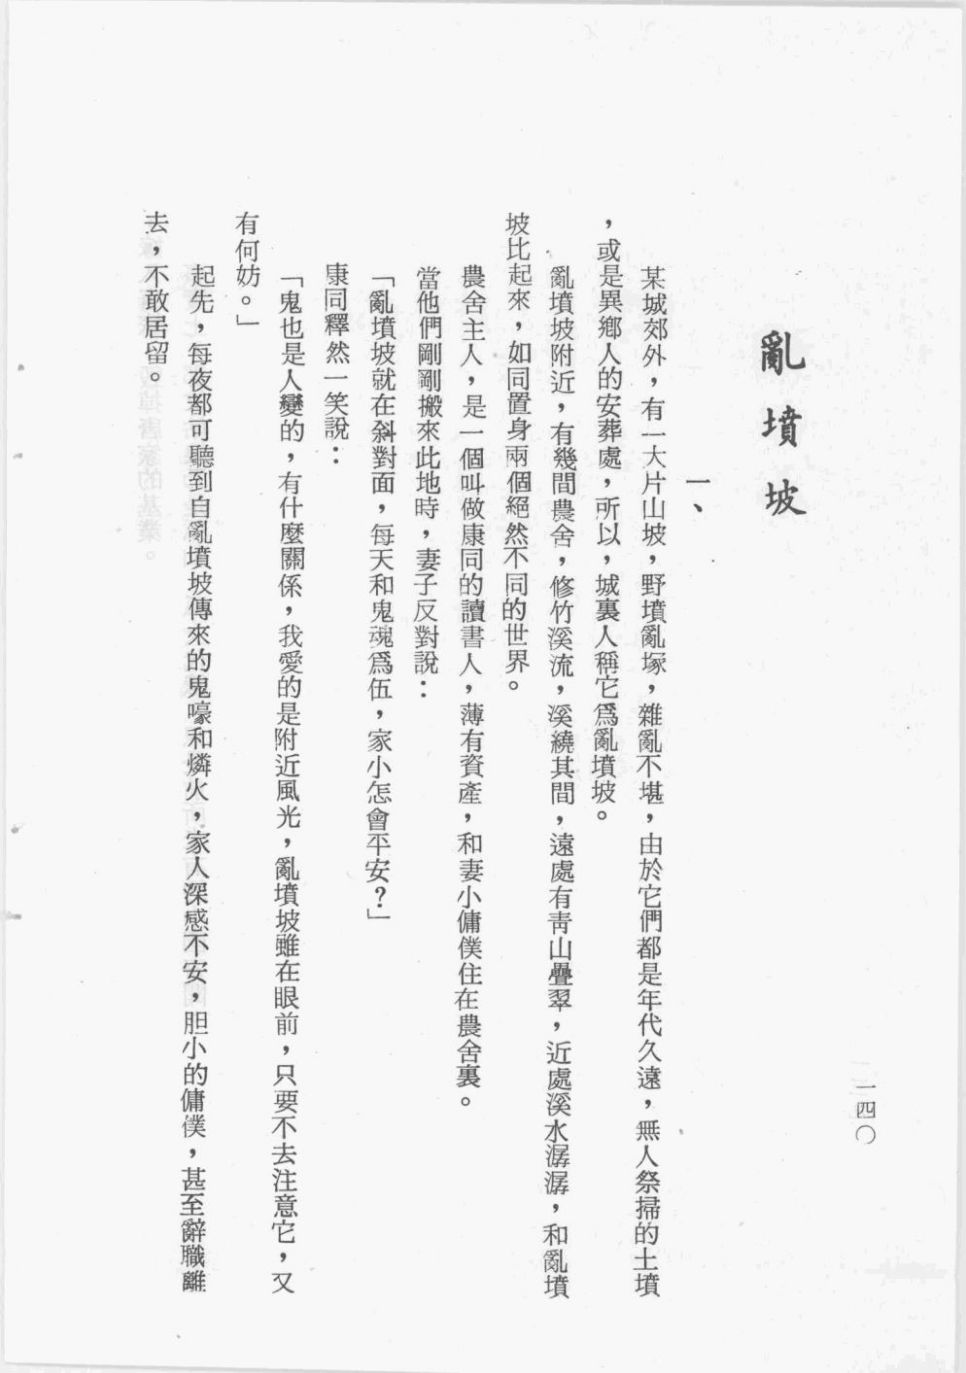 一四〇
亂墳坡
一、
某城郊外，有一大片山坡，野墳亂塚，雜亂不堪，由於它們都是年代久遠，無人祭掃的土墳
，或是異鄉人的安葬處，所以，城裏人稱它爲亂墳坡。
亂墳坡附近，有幾間農舍，修竹溪流，溪繞其間，遠處有靑山疊翠，近處溪水潺潺，和亂墳
坡比起來，如同置身兩個絕然不同的世界。
農舍主人，是一個叫做康同的讀書人，薄有資產，和妻小傭僕住在農舍裏。
當他們剛剛搬來此地時，妻子反對說：
「亂墳坡就在斜對面，每天和鬼魂爲伍，家小怎會平安？」
康同釋然一笑說：
「鬼也是人變的，有什麼關係，我愛的是附近風光，亂墳坡雖在眼前，只要不去注意它，又
有何妨。」
起先，每夜都可聽到自亂墳坡傳來的鬼嚎和燐火，家人深感不安，胆小的傭僕，甚至辭職離
去，不敢居留。